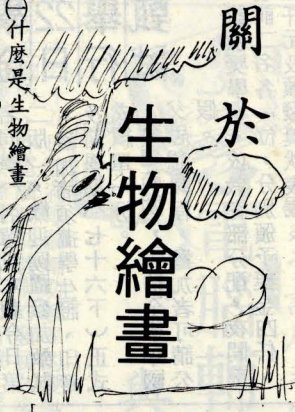 關於
生物繪畫
㈠什麼是生物繪畫